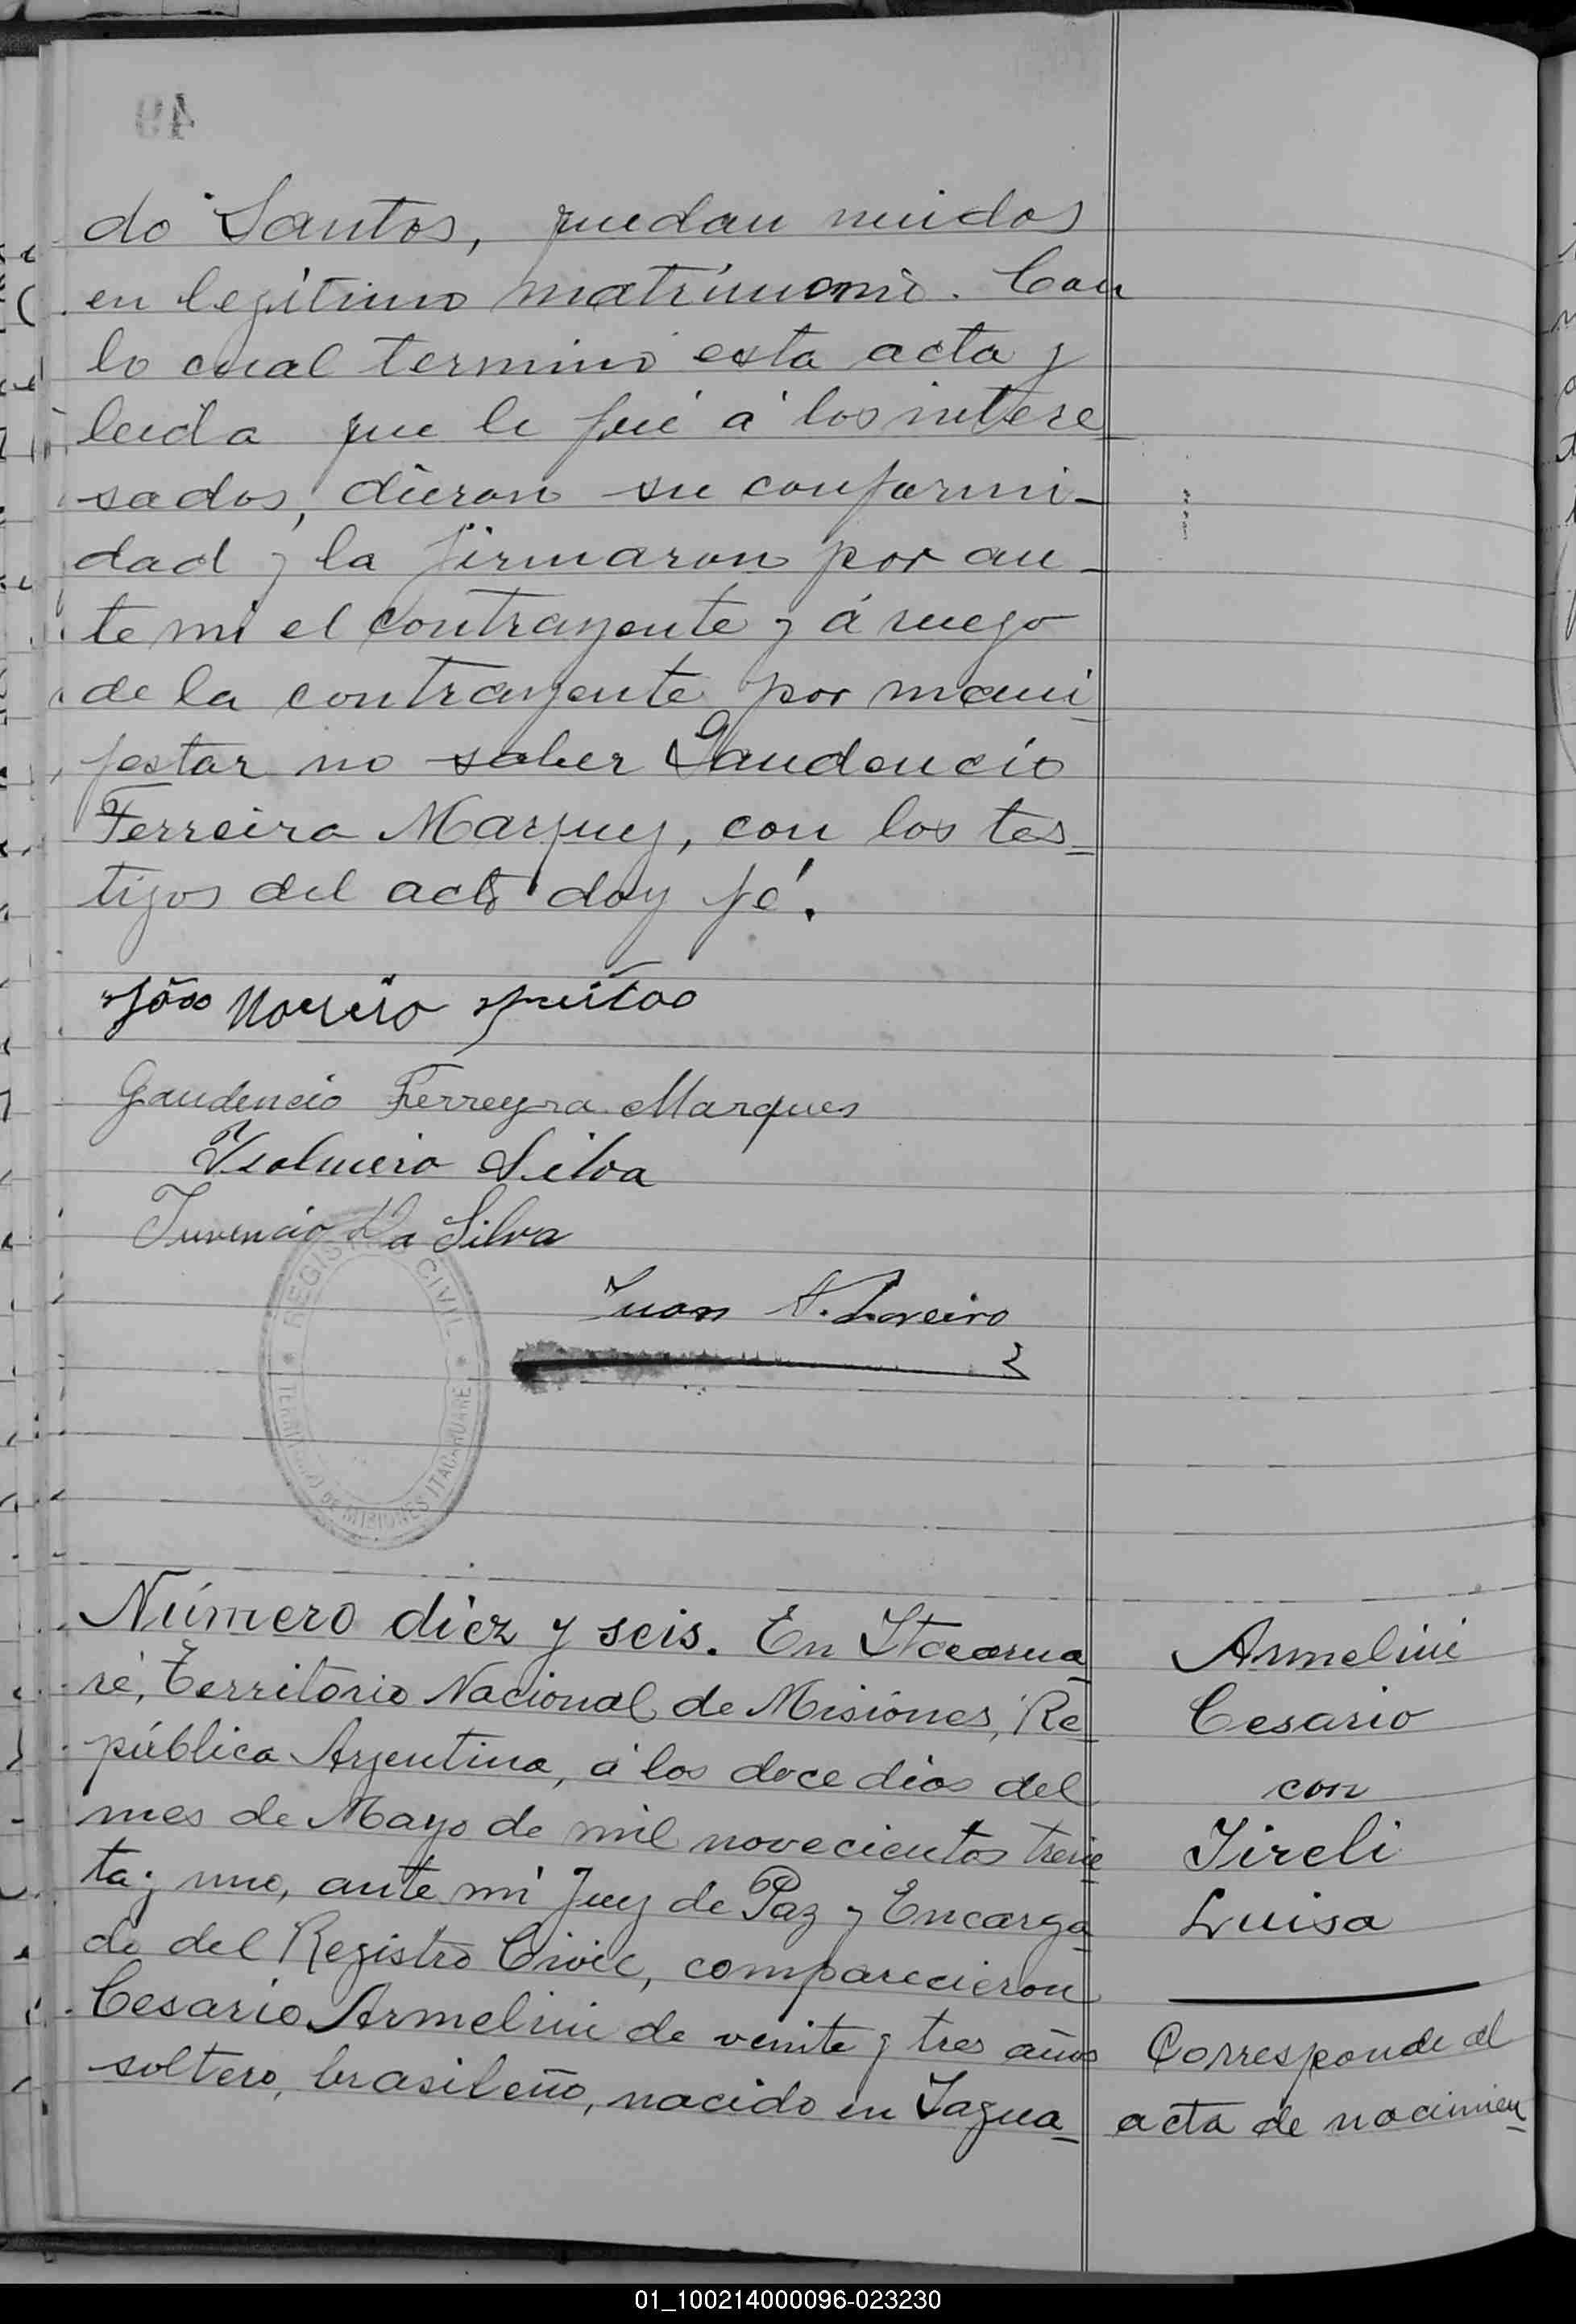 49
do Santos, quedan unidos
en legítimo matrimonio. Con
lo cual terminó esta acta y
leida que le fué á los intere
sados, dieron su conformi-
dad y la firmaron por an-
te mi el contrayente y á ruego
de la contrayente por mani
festar no saber Gaudencio
Ferreira Marquez, con los tes=
tigos del acto doy fé.
João
Gaudencio Ferreyra Marques
Silva
Juvencio Da Silva
REGISTRO CIVIL
TERRITORIO DE MISIONES ITACARUARE
Juan A. Loreiro
Número diez y seis. En Itacarua=
ré, Territorio Nacional de Misiones, Re=
pública Argentina, á los doce dias del
mes de Mayo de mil novecientos trein=
ta y uno, ante mi Juez de Paz y Encarga=
do del Registro Civil, comparecieron
Cesario Armelini de veinte y tres años
soltero, brasileño, nacido en Jagua=
Armelini
Cesario
con
Tireli
Luisa
Corresponde al
acta de nacimien=
01_100214000096-023230